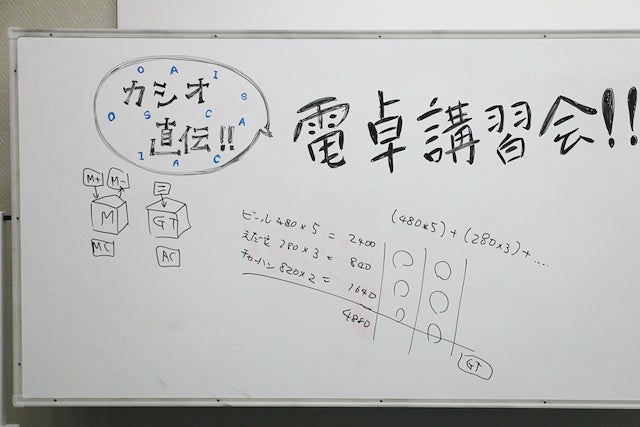 カシオ
直伝!!
CASIO CASIO
電卓講習会!!
M+ M-
M
MC
=
GT
AC
ビール 480×5 = 2400
えだまめ 280×3 = 840
チャーハン 820×2 = 1640
4880
(480×5) + (280×3) + ....
GT